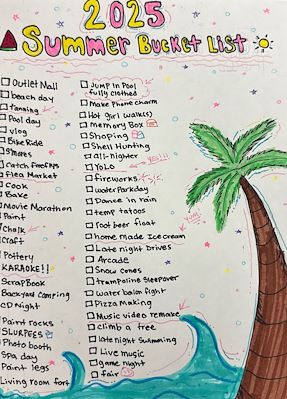 2025
Summer Bucket List
Outlet Mall
beach day
tanning
Pool day
vlog
Bike Ride
S'mores
Catch fireflys
flea Market
Cook
Bake
Movie Marathon
Paint
Chalk
Craft
Pottery
KARAOKE!!
ScrapBook
Backyard Camping
CD Night
Paint rocks
SLURPEES
Photo booth
Spa day
Paint legs
Living room fort
Jump in Pool
fully clothed
Make Phone charm
Hot girl walk(s)
memory Box
Shoping
Shell Hunting
all-nighter
YOLO
fireworks
water Park day
Dance in rain
temp tatoos
root beer float
home made Ice cream
Late night Drives
Arcade
Snow cones
Trampoline Sleepover
water baloon fight
Pizza Making
Music video remake
climb a tree
late night Swimming
Live music
game night
fair